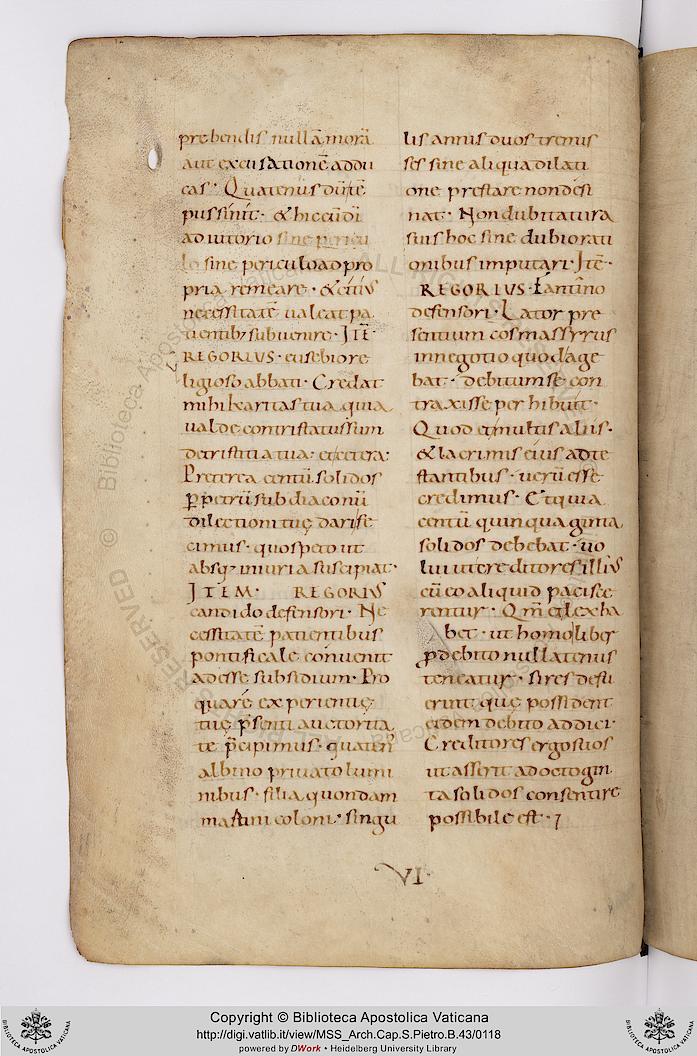 prehendis nullā morā
aut excusationē addu
cas· Quatenus dū tē
pus sinit· & hic cū dī
adiutorio sine pericu
lo sine periculo ad pro
pria remeare· & citius
necessitatē ualeat pa
tientib; subuenire· ITĒ·
REGORIUS· eusebio re
ligioso abbati· Credat
mihi karitas tua quia
ualde contristatus sum
de tristitia tua· et cetera·
Preterea centū solidos
ꝑ petrū subdiaconū
dilectioni tuę dari fe
cimus· quos peto ut
absq; iniuria suscipiat·
ITEM· REGORIUS
candido defensori· Ne
cessitatē patientibus
pontificale conuenit
adesse subsidium· Pro
quare experientię
tuę p̄senti auctorita
te p̄cipimus· quaten̄
albino priuato lumi
nibus· filia quondam
martini coloni· singu
lis annis duos tremis
ses sine aliqua dilati
one prestare non desi
nat· Non dubitatura
suis hoc sine dubio rati
onibus imputari· ITĒ·
REGORIUS· fantino
defensori· Lator pre
sentium cosmas syrus
in negotio quod age
bat· debitum se con
traxisse perhibuit·
Quod et multis aliis·
& lacrimis eius adte
stantibus· uerū esse
credimus· Et quia
centū quinquaginta
solidos debebat· uo
lui ut creditores illius
cū eo aliquid pacisce
rentur· Qm̄ et lex ha
bet· ut homo liber
ꝓ debito nullatenus
teneatur· si res defu
erint quę possident
eidem debito addici·
Creditores ergo suos
ut asserit ad octogin
ta solidos consentire
possibile est· 7
VI·
BIBLIOTECA APOSTOLICA VATICANA
Copyright © Biblioteca Apostolica Vaticana
http://digi.vatlib.it/view/MSS_Arch.Cap.S.Pietro.B.43/0118
powered by DWork • Heidelberg University Library
BIBLIOTECA APOSTOLICA VATICANA